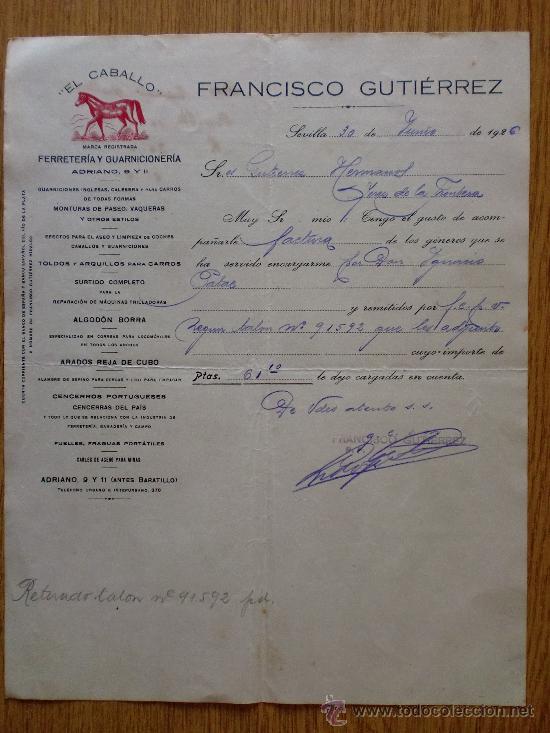 "EL CABALLO"
MARCA REGISTRADA
FERRETERÍA Y GUARNICIONERÍA
ADRIANO, 9 Y 11
GUARNICIONES INGLESAS, CALESERA Y PARA CARROS
DE TODAS FORMAS
MONTURAS DE PASEO, VAQUERAS
Y OTROS ESTILOS
EFECTOS PARA EL ASEO Y LIMPIEZA DE COCHES
CABALLOS Y GUARNICIONES
TOLDOS Y ARQUILLOS PARA CARROS
SURTIDO COMPLETO
PARA LA
REPARACIÓN DE MÁQUINAS TRILLADORAS
ALGODÓN BORRA
ESPECIALIDAD EN CORREAS PARA LOCOMÓVILES
EN TODOS LOS ANCHOS
ARADOS REJA DE CUBO
ALAMBRE DE ESPINO PARA CERCAS Y LISO PARA EMPACAR
CENCERROS PORTUGUESES
CENCERRAS DEL PAÍS
Y TODO LO QUE SE RELACIONA CON LA INDUSTRIA DE
FERRETERÍA, GANADERÍA Y CAMPO
FUELLES, FRAGUAS PORTÁTILES
CABLES DE ACERO PARA MINAS
ADRIANO, 9 Y 11 (ANTES BARATILLO)
TELÉFONO URBANO E INTERURBANO, 370
CUENTA CORRIENTE CON EL BANCO DE ESPAÑA Y BANCO ESPAÑOL DEL RÍO DE LA PLATA
A NOMBRE DE FRANCISCO GUTIÉRREZ HIDALGO
FRANCISCO GUTIÉRREZ
Sevilla 30 de Junio de 1926
Sres Gutierrez Hermanos
Jerez de la Frontera
Muy Sr mio: Tengo el gusto de acom-
pañarle factura de los géneros que se
ha servido encargarme por Don Ignacio
Palac
y remitidos por f.c.p.v.
según talon nº 91592 que les adjunto
cuyo importe de
Ptas. 61 10 le dejo cargadas en cuenta.
De Vdes atento s.s.
FRANCISCO GUTIERREZ
Retirado talon nº 91592 pd.
todocoleccion
www.todocoleccion.net